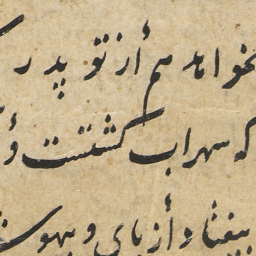 بخواهد هم أز تو پدر
که سهراب کشتست و أ
بیفتاد أز پای و بیهوش